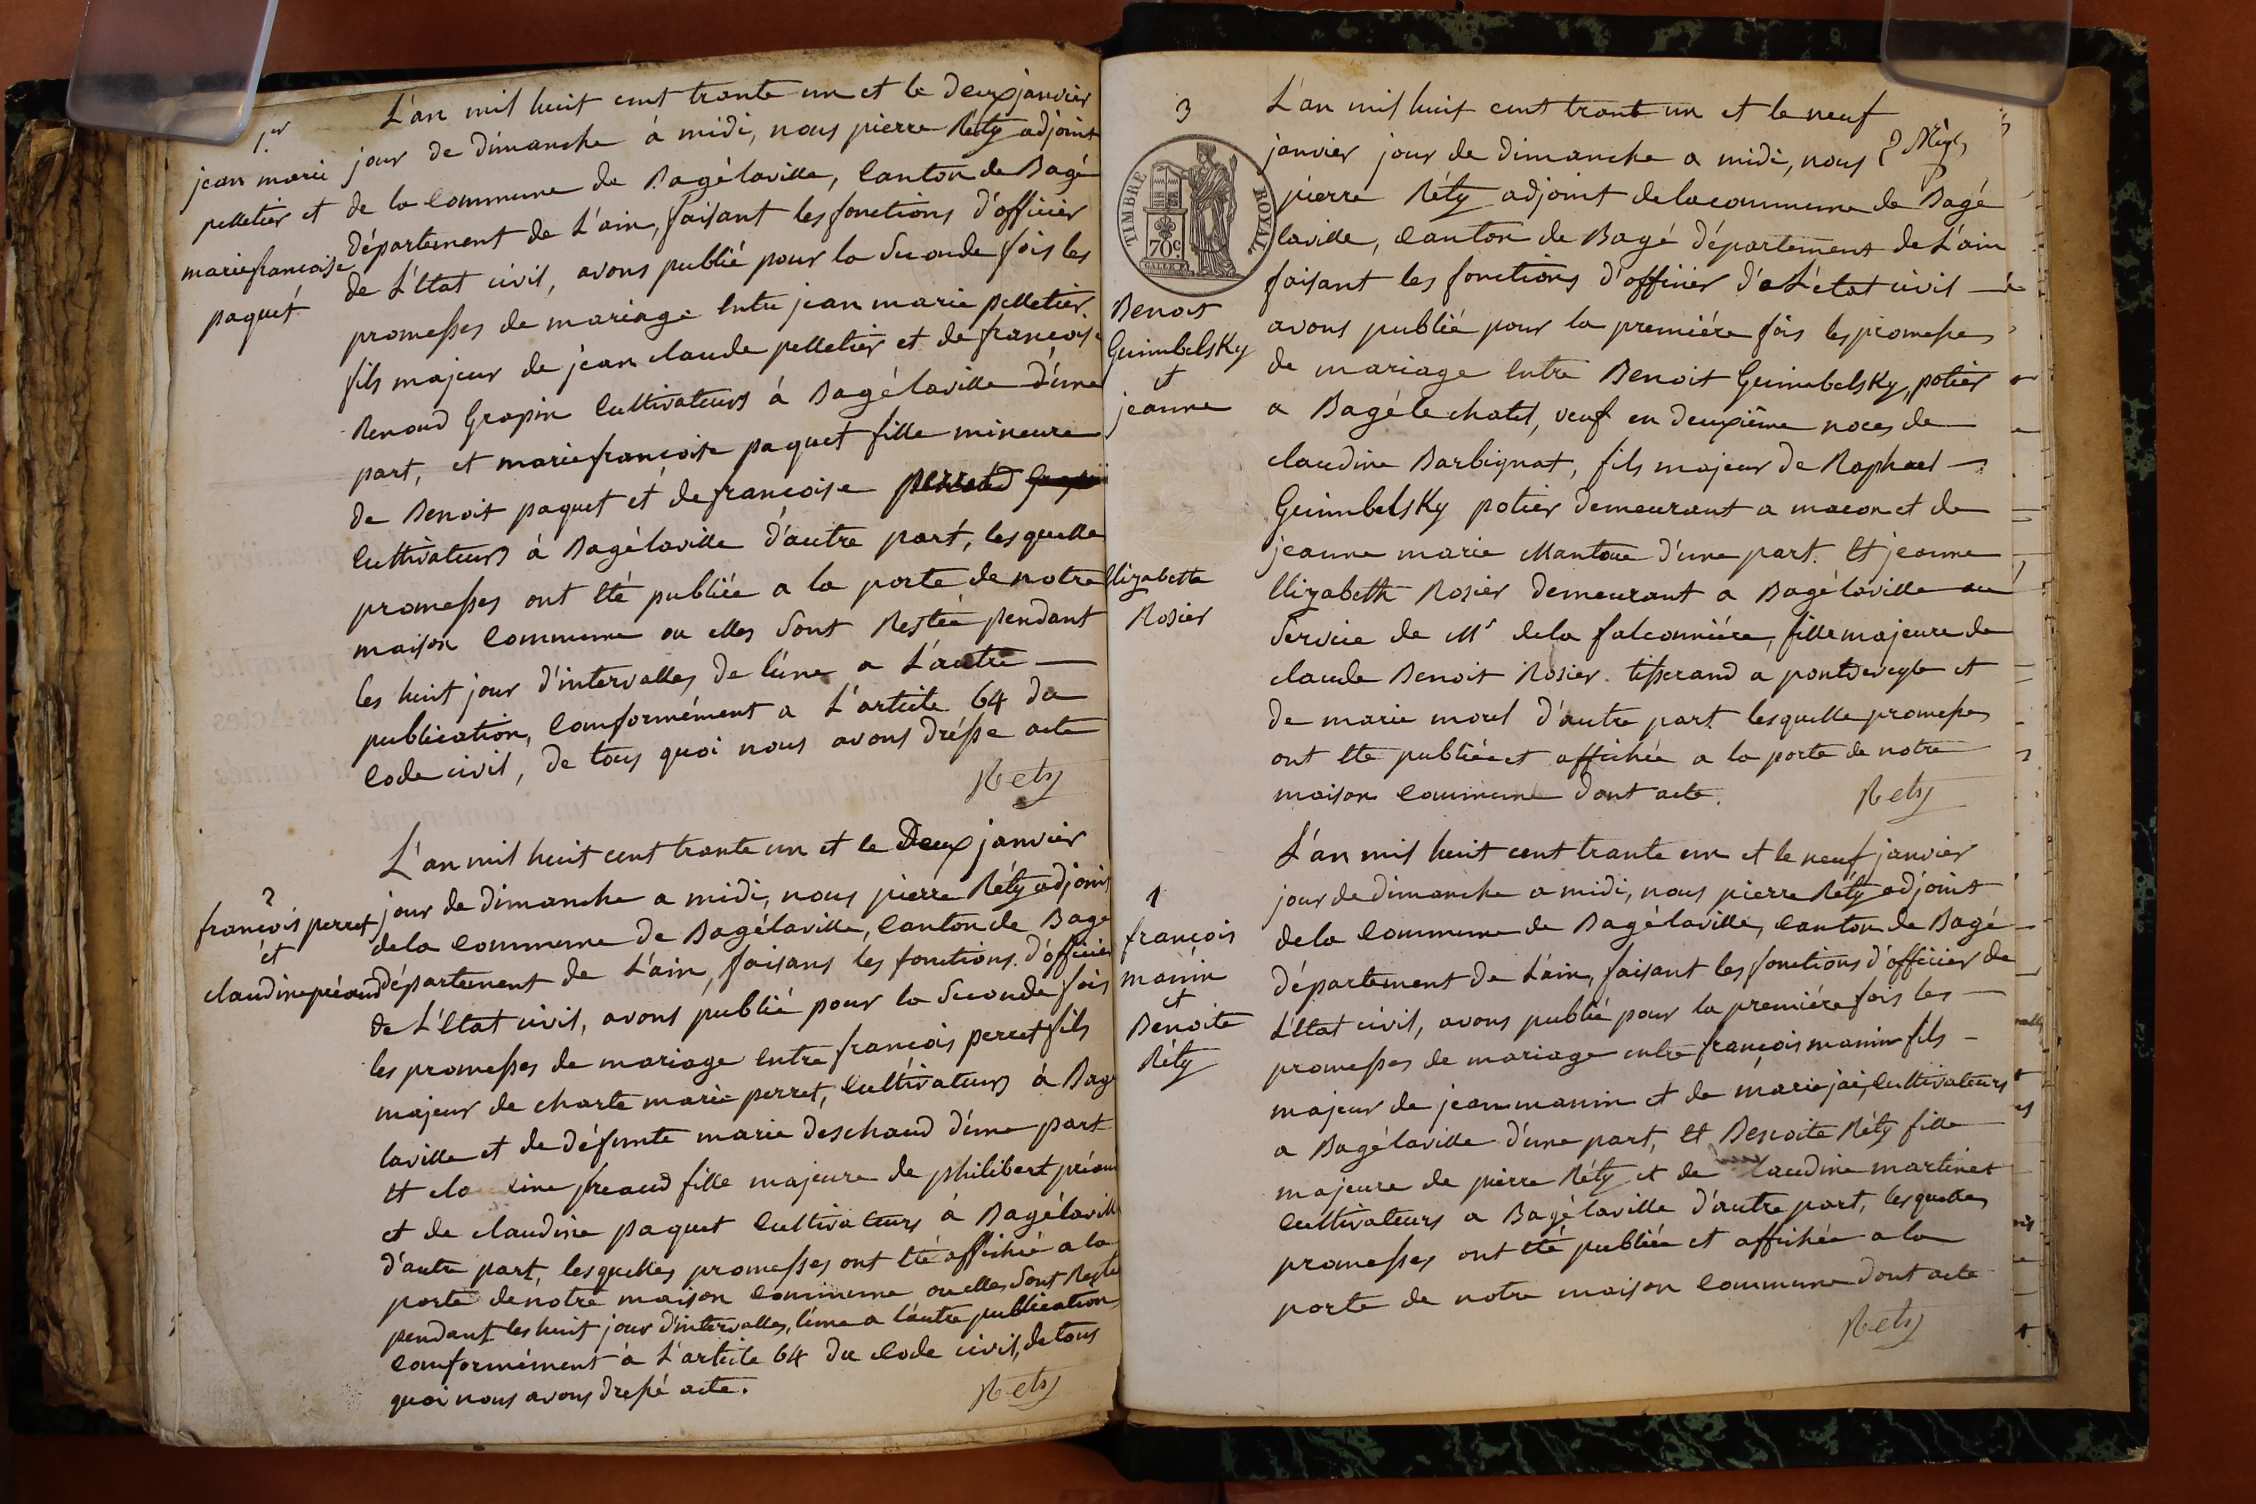 1.er
jean marie
pelletier et
marie francoise
paquet
L'an mil huit cent trante un et le deux janvier
jour de dimanche à midi, nous pierre Réty adjoint
de la Commune de Bagélaville, Canton de Bagé
département de L'ain, faisant les fonctions d'officier
de L'Etat civil, avons publié pour la Seconde fois les
promesses de mariage Entre jean marie pelletier
fils majeur de jean claude pelletier et de francoise
Renoud Grapin Cultivateurs à Bagélaville d'une
part, et marie francoise paquet fille mineure
de Benoit paquet et de francoise
Cultivateurs à Bagélaville d'autre part, lesquelle
promesses ont Eté publiée a la porte de notre
maison Commune ou elles Sont Restée pendant
les huit jour d'intervalles de l'une a L'autre
publication, Comformément a L'article 64 du
Code civil, de tous quoi nous avons drésse acte
Rety
2
françois perret
et
claudine préaud
L'an mil huit cent trante un et le Deux janvier
jour de dimanche a midi, nous pierre Réty adjoint
de la Commune de Bagélaville, Canton de Bagé
département de L'ain, faisans les fonctions d'officier
de L'Etat civil, avons publié pour la Seconde fois
les promesses de mariage Entre françois perret fils
majeur de charle marie perret, Cultivateurs à Bagé
laville et de défunte marie deschaud d'une part
Et claudine preaud fille majeure de philibert préaud
et de claudine paquet Cultivateurs à Bagélaville
d'autre part, lesquelles promesses ont Eté affichée a la
porte de notre maison Commune ou elles Sont Restée
pendant les huit jour d'intervalles, l'une a l'autre publication
Comformément à L'article 64 du Code civil, de tous
quoi nous avons dressé acte.
Rety
3
TIMBRE ROYAL
70c.
Benoit
Guimbelsky
et
jeanne
Elizabette
Rosier
L'an mil huit cent trante un et le neuf
janvier jour de dimanche a midi, nous
pierre Réty adjoint de la commune de Bagé
laville, Canton de Bagé département de L'ain
faisant les fonctions d'officier de L'état civil
avons publié pour la premiére fois les promesses
de mariage Entre Benoit Guimbelsky, potier
a Bagé le chatel, veuf en deuxiême noces de
claudine Barbignat, fils majeur de Raphael
Guimbelsky potier demeurant a macon et de
jeanne marie Mantoue d'une part. Et jeanne
Elizabeth Rosier demeurant a Bagélaville au
Service de Mr de la falconniére, fille majeure de
claude Benoit Rosier. tisserand a pontdeveyle et
de marie morel d'autre part lesquelle promesses
ont Eté publiée et affichée a la porte de notre
maison Commune dont acte.
Rety
françois
manin
et
Benoite
Réty
L'an mil huit cent trante un et le neuf janvier
jour de dimanche a midi, nous pierre Réty adjoint
de la Commune de Bagélaville, Canton de Bagé
département de L'ain, faisant les fonctions d'officier de
L'Etat civil, avons publié pour la premiére fois les
promesses de mariage entre françois manin fils
majeur de jean manin et de marie jai, Cultivateurs
a Bagélaville d'une part, Et Benoite Réty fille
majeure de pierre Réty et de claudine martinet
Cultivateurs a Bagélaville d'autre part, lesquelles
promesses ont Eté publiée et affichée a la
porte de notre maison Commune dont acte
Rety